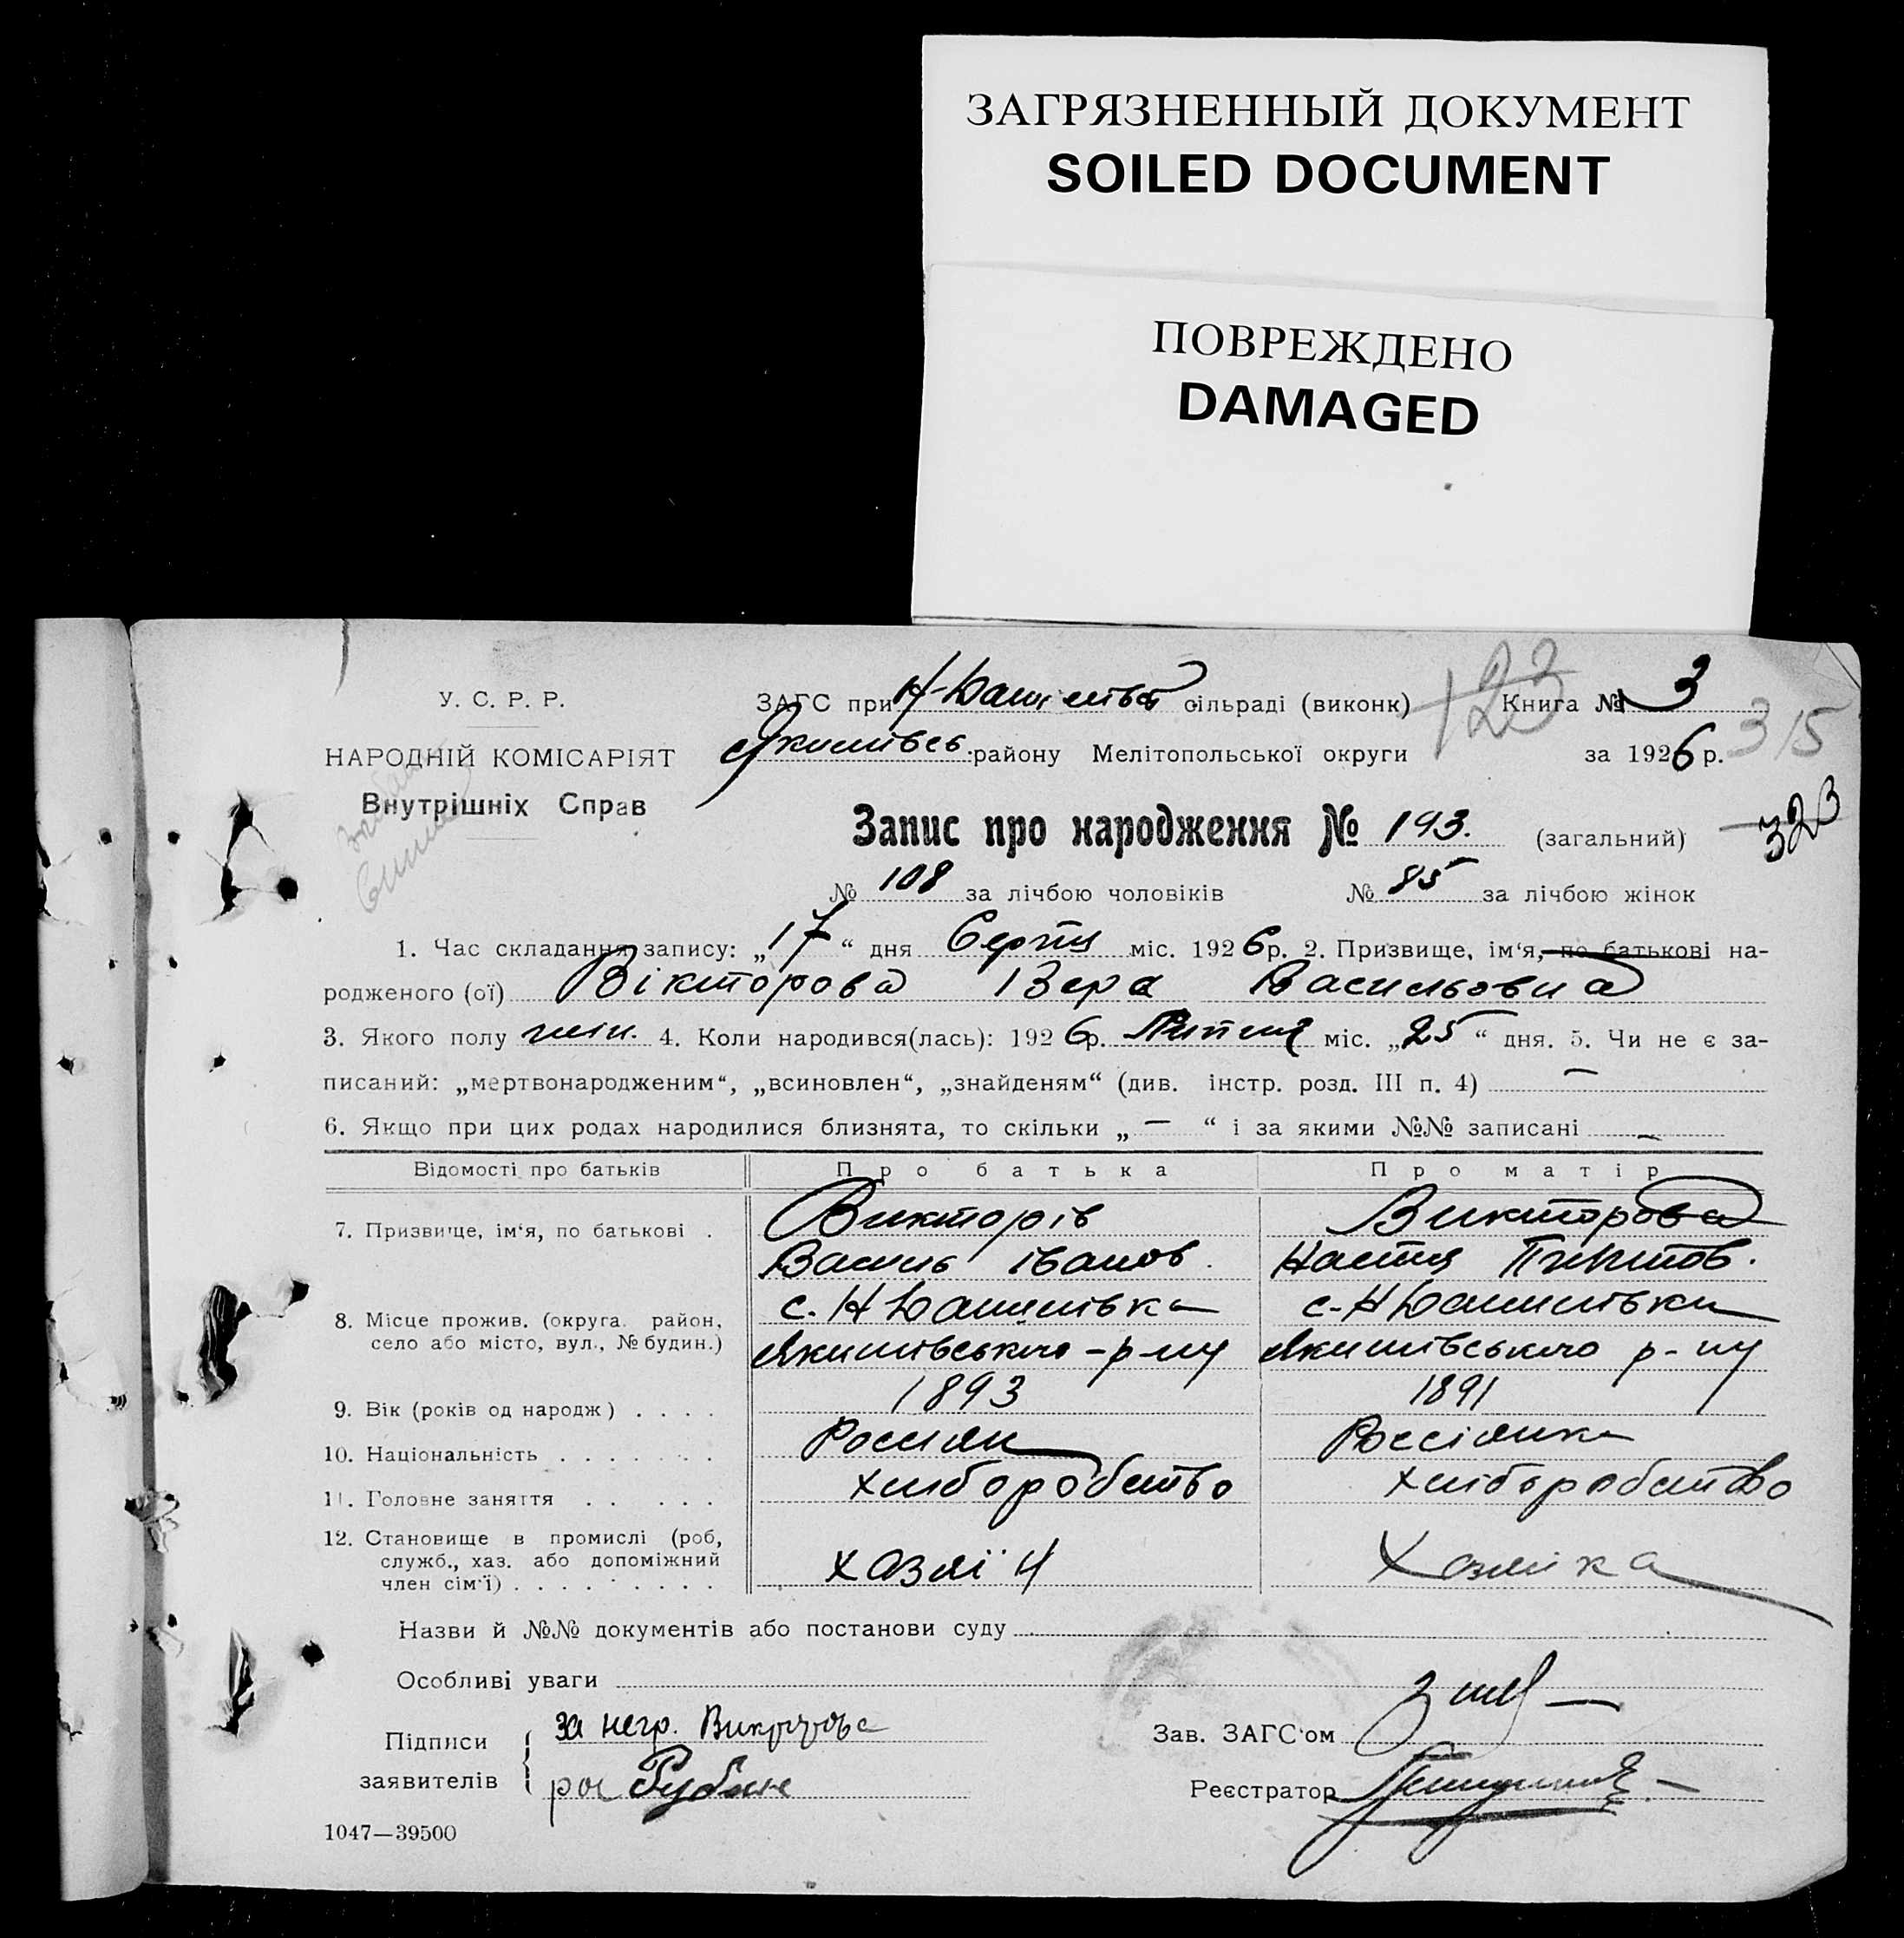 ЗАГРЯЗНЕННЫЙ ДОКУМЕНТ
SOILED DOCUMENT
ПОВРЕЖДЕНО
DAMAGED
У. С. Р. Р.
НАРОДНІЙ КОМІСАРІЯТ
Внутрішніх Справ
ЗАГС при сільраді (виконк) 123 Книга № 3
району Мелітопольської округи за 1926 р. 315
Запис про народження № 193. (загальний) 323
№ 108 за лічбою чоловіків № 85 за лічбою жінок
1. Час складання запису: „17“ дня Серпня міс. 1926 р. 2. Призвище, ім‘я, по батькові на-
родженого (ої) Вікторова Вера Васильовна
3. Якого полу жін. 4. Коли народився(лась): 1926 р. Липня міс. „25“ дня. 5. Чи не є за-
писаний: „мертвонародженим“, „всиновлен“, „знайденям“ (див. інстр. розд. III п. 4) —
6. Якщо при цих родах народилися близнята, то скільки „ — “ і за якими №№ записані —
Відомості про батьків Про батька Про матір
7. Призвище, ім‘я, по батькові . Викторів Викторова
Василь Іванов. Настя
8. Місце прожив. (округа, район, с. Н Данилівка с. Н Данилівки
село або місто, вул., № будин.) Якимівського р-ну Якимівського р-ну
9. Вік (років од народж) . . . . 1893 1891
10. Національність . . . . . . . Россиян Россіянка
11. Головне заняття . . . . . хліборобство хліборобство
12. Становище в промислі (роб, хазяїн Хазяйка
служб., хаз. або допоміжний
член сім‘ї) . . . . . . . . .
Назви й №№ документів або постанови суду
Особливі уваги
Підписи за негр. Викторова
заявителів
Зав. ЗАГС‘ом
Реєстратор
1047—39500